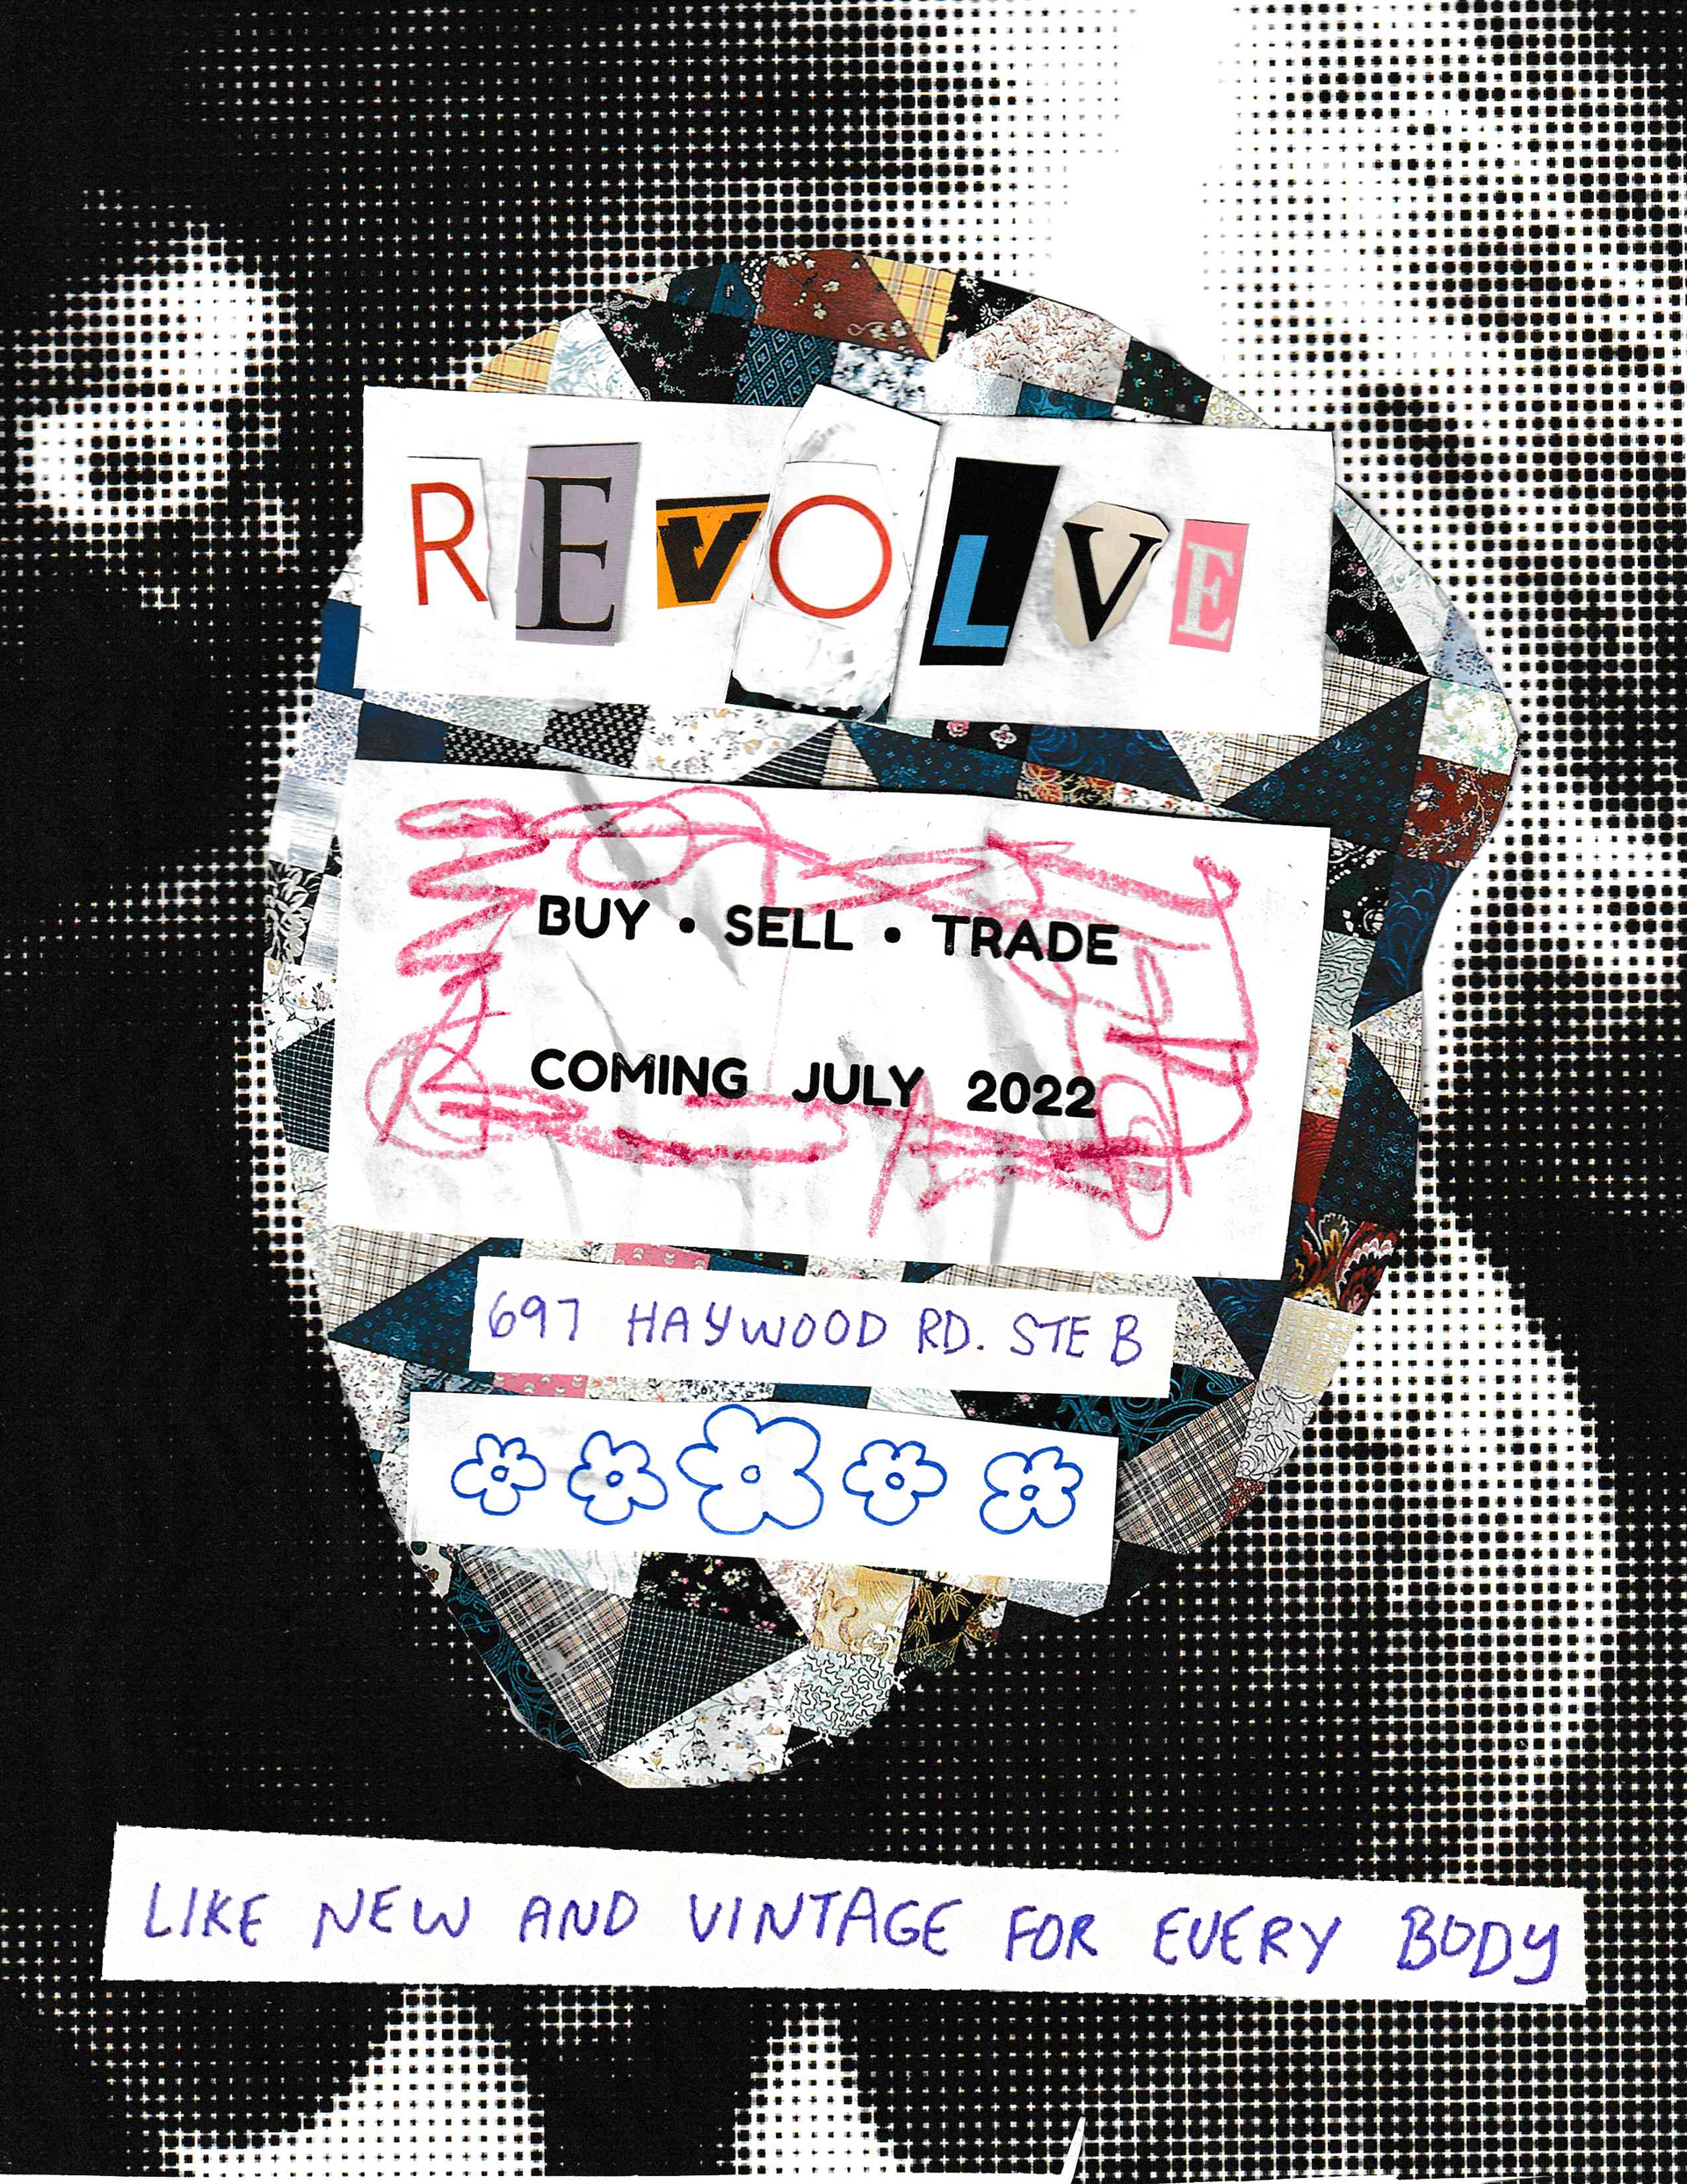 REVOLVE
BUY • SELL • TRADE
COMING JULY 2022
697 HAYWOOD RD. STE B
LIKE NEW AND VINTAGE FOR EVERY BODY